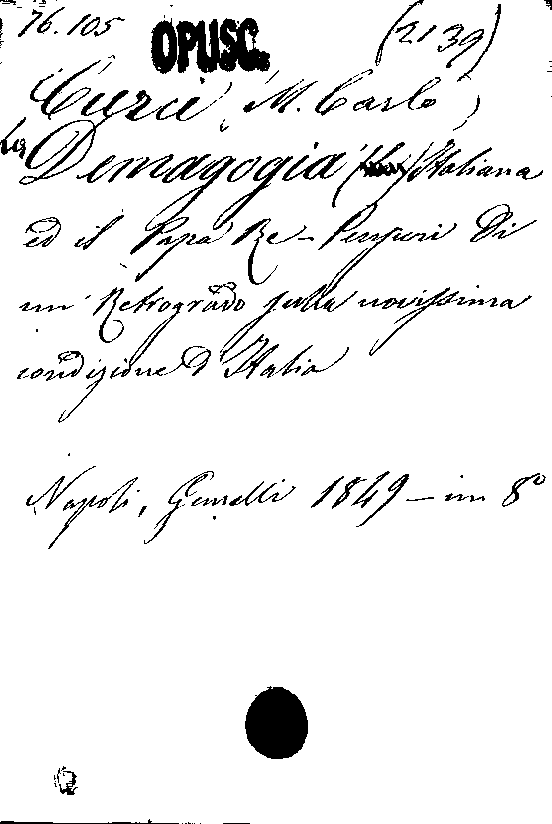 76.105 OPUSC. (2139)
Curci (M. Carlo)
La Demagogia Italiana
ed il Papa Re - Pensieri di
un Retrogrado sulla novissima
condizione d'Italia
Napoli, Gemelli 1849 - in 8°